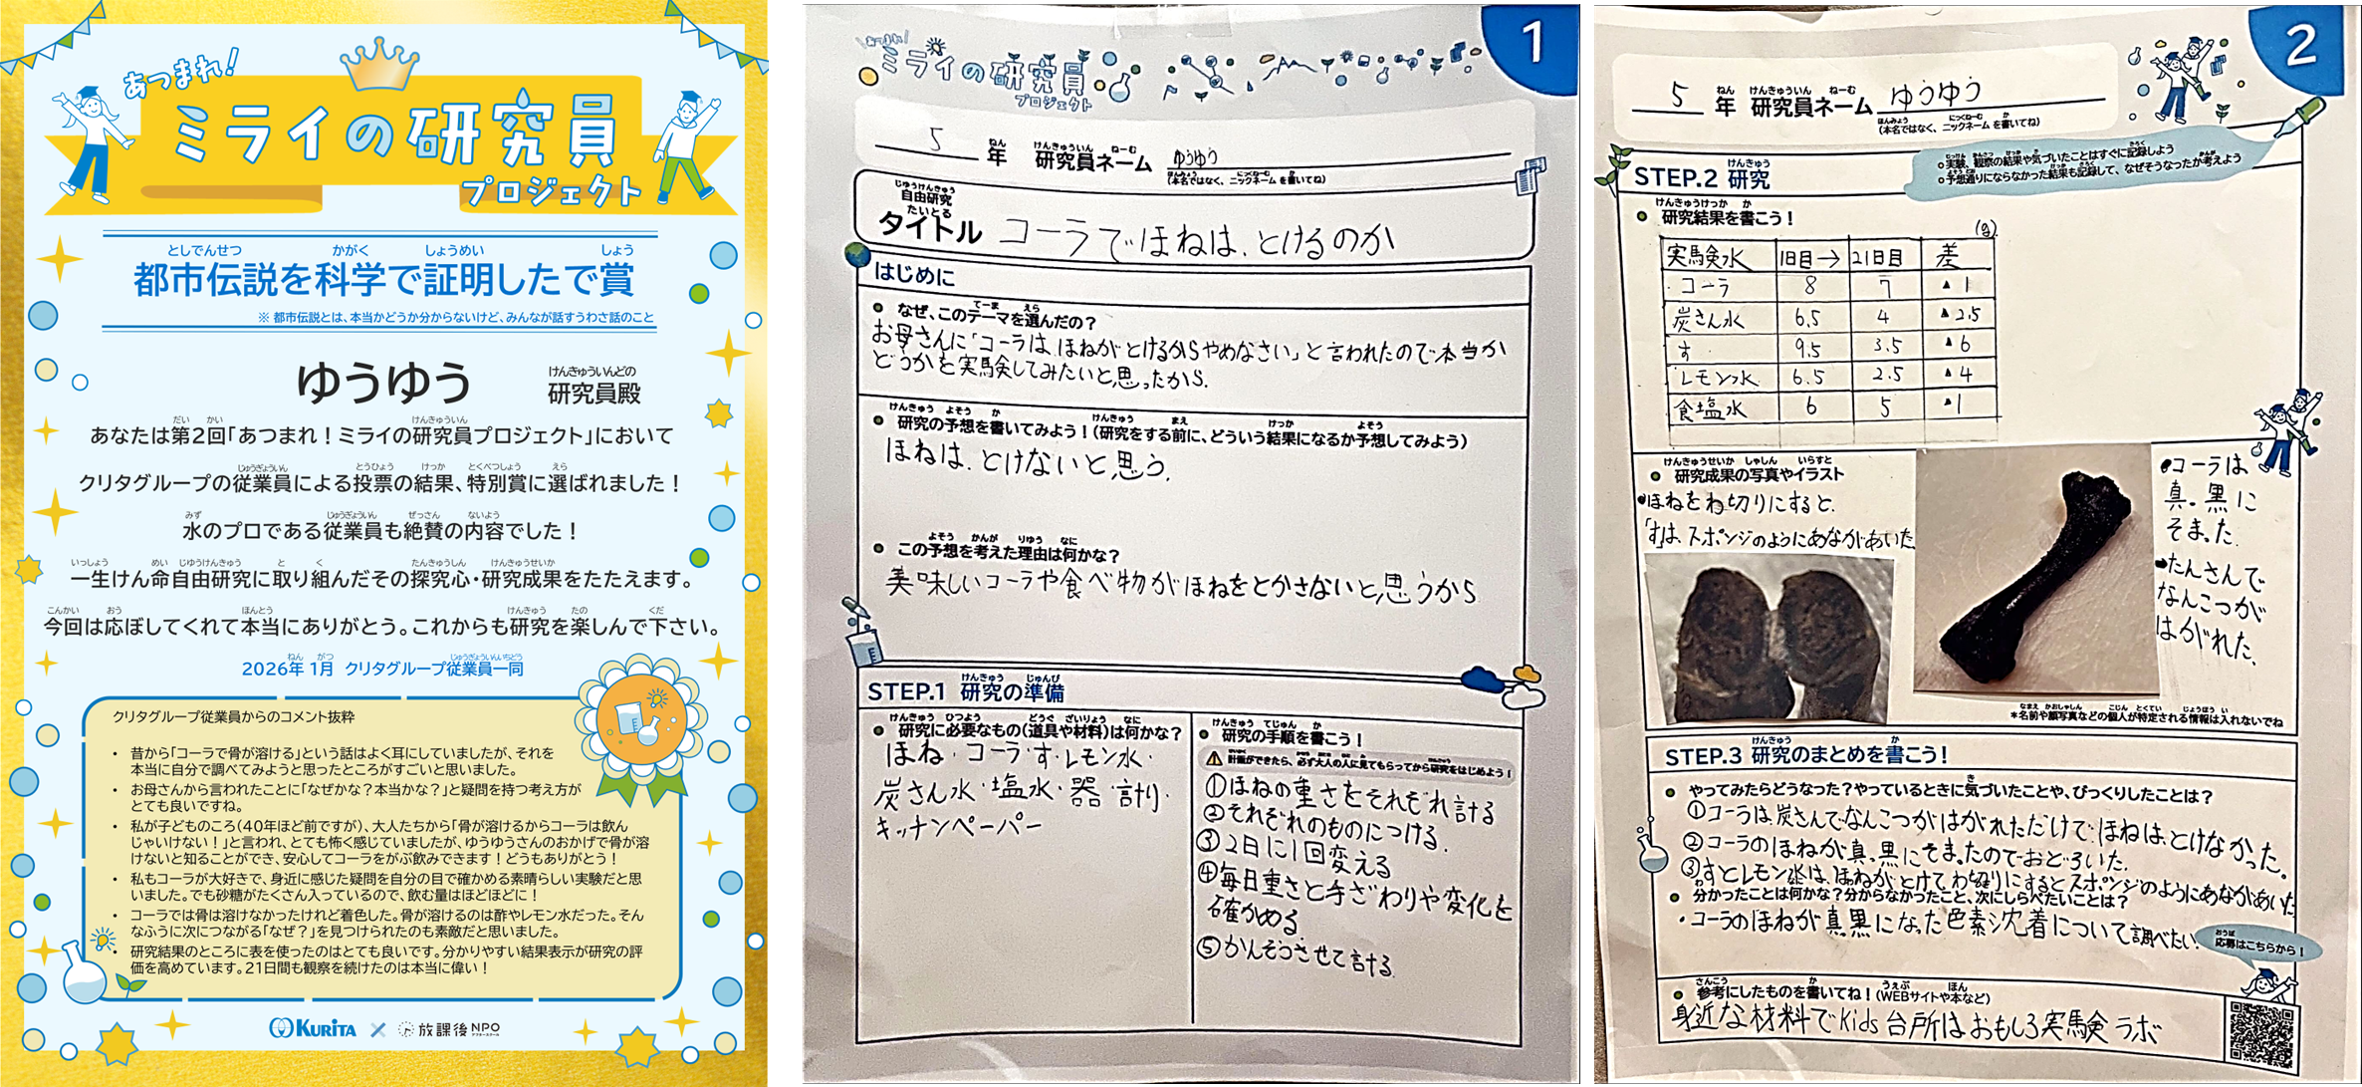 あつまれ！
ミライの研究員
プロジェクト
としでんせつ かがく しょうめい しょう
都市伝説を科学で証明したで賞
※ 都市伝説とは、本当かどうか分からないけど、みんなが話すうわさ話のこと
ゆうゆう
けんきゅういんどの
研究員殿
だい かい けんきゅういん
あなたは第2回「あつまれ！ミライの研究員プロジェクト」において
じゅうぎょういん とうひょう けっか とくべつしょう えら
クリタグループの従業員による投票の結果、特別賞に選ばれました！
みず じゅうぎょういん ぜっさん ないよう
水のプロである従業員も絶賛の内容でした！
いっしょう めい じゆうけんきゅう と く たんきゅうしん けんきゅうせいか
一生けん命自由研究に取り組んだその探究心・研究成果をたたえます。
こんかい おう ほんとう けんきゅう たの くだ
今回は応ぼしてくれて本当にありがとう。これからも研究を楽しんで下さい。
ねん がつ じゅうぎょういんいちどう
2026年 1月 クリタグループ従業員一同
クリタグループ従業員からのコメント抜粋
• 昔から「コーラで骨が溶ける」という話はよく耳にしていましたが、それを
本当に自分で調べてみようと思ったところがすごいと思いました。
• お母さんから言われたことに「なぜかな？本当かな？」と疑問を持つ考え方が
とても良いですね。
• 私が子どものころ（40年ほど前ですが）、大人たちから「骨が溶けるからコーラは飲ん
じゃいけない！」と言われ、とても怖く感じていましたが、ゆうゆうさんのおかげで骨が溶
けないと知ることができ、安心してコーラをがぶ飲みできます！どうもありがとう！
• 私もコーラが大好きで、身近に感じた疑問を自分の目で確かめる素晴らしい実験だと思
いました。でも砂糖がたくさん入っているので、飲む量はほどほどに！
• コーラでは骨は溶けなかったけれど着色した。骨が溶けるのは酢やレモン水だった。そん
なふうに次につながる「なぜ？」を見つけられたのも素敵だと思いました。
• 研究結果のところに表を使ったのはとても良いです。分かりやすい結果表示が研究の評
価を高めています。21日間も観察を続けたのは本当に偉い！
KURITA × 放課後NPO
アフタースクール
1
あつまれ！
ミライの研究員
プロジェクト
ねん けんきゅういん ねーむ
5 年 研究員ネーム ゆうゆう
ほんみょう にっくねーむ か
（本名ではなく、ニックネームを書いてね）
じゆうけんきゅう
自由研究
たいとる
タイトル コーラでほねは、とけるのか
はじめに
てーま えら
● なぜ、このテーマを選んだの？
お母さんに「コーラは、ほねがとけるからやめなさい」と言われたので本当か
どうかを実験してみたいと思ったから。
けんきゅう よそう か けんきゅう まえ けっか よそう
● 研究の予想を書いてみよう！（研究をする前に、どういう結果になるか予想してみよう）
ほねは、とけないと思う。
よそう かんが りゆう なに
● この予想を考えた理由は何かな？
美味しいコーラや食べ物がほねをとかさないと思うから
けんきゅう じゅんび
STEP.1 研究の準備
けんきゅう ひつよう どうぐ ざいりょう なに
● 研究に必要なもの（道具や材料）は何かな？
ほね・コーラ・す・レモン水・
炭さん水・塩水・器・計り・
キッチンペーパー
けんきゅう てじゅん か
● 研究の手順を書こう！
計画ができたら、必ず大人の人に見てもらってから研究をはじめよう！
①ほねの重さをそれぞれ計る
②それぞれのものにつける。
③2日に1回変える
④毎日重さと手ざわりや変化を
確かめる。
⑤かんそうさせて計る。
2
ねん けんきゅういん ねーむ
5 年 研究員ネーム ゆうゆう
ほんみょう にっくねーむ か
（本名ではなく、ニックネームを書いてね）
けんきゅう
STEP.2 研究
○実験、観察の結果や気づいたことはすぐに記録しよう
○予想通りにならなかった結果も記録して、なぜそうなったか考えよう
けんきゅうけっか か
● 研究結果を書こう！
(g)
実験水 1日目→ 21日目 差
・コーラ 8 7 ▲1
炭さん水 6.5 4 ▲2.5
す 9.5 3.5 ▲6
レモン水 6.5 2.5 ▲4
食塩水 6 5 ▲1
けんきゅうせいか しゃしん いらすと
● 研究成果の写真やイラスト
●ほねをわ切りにすると、
「す」は、スポンジのようにあながあいた
●コーラは
真っ黒に
そまった。
➡たんさんで
なんこつが
はがれた。
なまえ かおしゃしん こじん とくてい じょうほう い
＊名前や顔写真などの個人が特定される情報は入れないでね
けんきゅう か
STEP.3 研究のまとめを書こう！
き
● やってみたらどうなった？やっているときに気づいたことや、びっくりしたことは？
①コーラは炭さんでなんこつがはがれただけで、ほねはとけなかった。
②コーラのほねが真っ黒にそまったのでおどろいた。
③すとレモン水は、ほねがとけてわ切りにするとスポンジのようにあながあいた
● 分かったことは何かな？分からなかったこと、次にしらべたいことは？
・コーラのほねが真黒になった色素沈着について調べたい。
おうぼ
応募はこちらから！
さんこう か うぇぶ ほん
● 参考にしたものを書いてね！（WEBサイトや本など）
身近な材料でKids台所はおもしろ実験ラボ